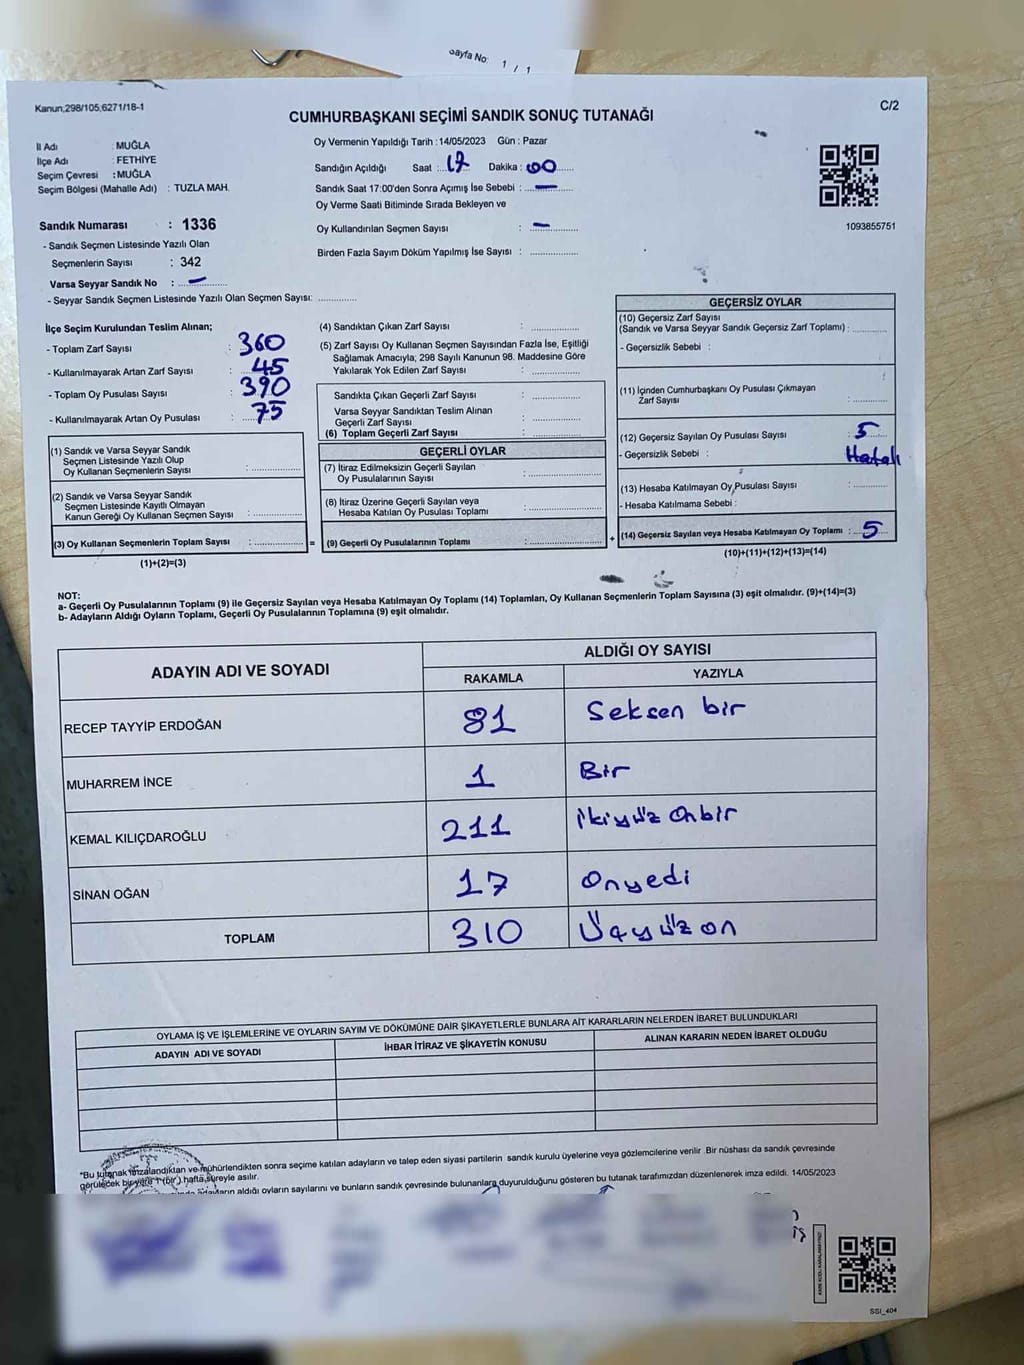 Sayfa No: 1 / 1
Kanun,298/105,6271/18-1
C/2
CUMHURBAŞKANI SEÇİMİ SANDIK SONUÇ TUTANAĞI
İl Adı : MUĞLA
İlçe Adı : FETHİYE
Seçim Çevresi : MUĞLA
Seçim Bölgesi (Mahalle Adı) : TUZLA MAH.
Oy Vermenin Yapıldığı Tarih : 14/05/2023 Gün : Pazar
Sandığın Açıldığı Saat : 17 Dakika : 00
Sandık Saat 17:00'den Sonra Açımış İse Sebebi : —
Oy Verme Saati Bitiminde Sırada Bekleyen ve
Oy Kullandırılan Seçmen Sayısı : —
Birden Fazla Sayım Döküm Yapılmış İse Sayısı :
1093855751
Sandık Numarası : 1336
- Sandık Seçmen Listesinde Yazılı Olan
Seçmenlerin Sayısı : 342
Varsa Seyyar Sandık No : —
- Seyyar Sandık Seçmen Listesinde Yazılı Olan Seçmen Sayısı:
İlçe Seçim Kurulundan Teslim Alınan;
- Toplam Zarf Sayısı : 360
- Kullanılmayarak Artan Zarf Sayısı : 45
- Toplam Oy Pusulası Sayısı : 390
- Kullanılmayarak Artan Oy Pusulası : 75
(1) Sandık ve Varsa Seyyar Sandık
Seçmen Listesinde Yazılı Olup
Oy Kullanan Seçmenlerin Sayısı :
(2) Sandık ve Varsa Seyyar Sandık
Seçmen Listesinde Kayıtlı Olmayan
Kanun Gereği Oy Kullanan Seçmen Sayısı :
(3) Oy Kullanan Seçmenlerin Toplam Sayısı : =
(1)+(2)=(3)
(4) Sandıktan Çıkan Zarf Sayısı :
(5) Zarf Sayısı Oy Kullanan Seçmen Sayısından Fazla İse, Eşitliği
Sağlamak Amacıyla; 298 Sayılı Kanunun 98. Maddesine Göre
Yakılarak Yok Edilen Zarf Sayısı :
Sandıkta Çıkan Geçerli Zarf Sayısı :
Varsa Seyyar Sandıktan Teslim Alınan
Geçerli Zarf Sayısı :
(6) Toplam Geçerli Zarf Sayısı :
GEÇERLİ OYLAR
(7) İtiraz Edilmeksizin Geçerli Sayılan
Oy Pusulalarının Sayısı :
(8) İtiraz Üzerine Geçerli Sayılan veya
Hesaba Katılan Oy Pusulası Toplamı :
(9) Geçerli Oy Pusulalarının Toplamı : +
GEÇERSİZ OYLAR
(10) Geçersiz Zarf Sayısı
(Sandık ve Varsa Seyyar Sandık Geçersiz Zarf Toplamı) :
- Geçersizlik Sebebi :
(11) İçinden Cumhurbaşkanı Oy Pusulası Çıkmayan
Zarf Sayısı :
(12) Geçersiz Sayılan Oy Pusulası Sayısı : 5
- Geçersizlik Sebebi : Hatalı
(13) Hesaba Katılmayan Oy Pusulası Sayısı :
- Hesaba Katılmama Sebebi :
(14) Geçersiz Sayılan veya Hesaba Katılmayan Oy Toplamı : 5
(10)+(11)+(12)+(13)=(14)
NOT:
a- Geçerli Oy Pusulalarının Toplamı (9) ile Geçersiz Sayılan veya Hesaba Katılmayan Oy Toplamı (14) Toplamları, Oy Kullanan Seçmenlerin Toplam Sayısına (3) eşit olmalıdır. (9)+(14)=(3)
b- Adayların Aldığı Oyların Toplamı, Geçerli Oy Pusulalarının Toplamına (9) eşit olmalıdır.
ADAYIN ADI VE SOYADI ALDIĞI OY SAYISI
RAKAMLA YAZIYLA
RECEP TAYYİP ERDOĞAN 81 Seksen bir
MUHARREM İNCE 1 Bir
KEMAL KILIÇDAROĞLU 211 ikiyüz Onbir
SİNAN OĞAN 17 Onyedi
TOPLAM 310 Üçyüz on
OYLAMA İŞ VE İŞLEMLERİNE VE OYLARIN SAYIM VE DÖKÜMÜNE DAİR ŞİKAYETLERLE BUNLARA AİT KARARLARIN NELERDEN İBARET BULUNDUKLARI
ADAYIN ADI VE SOYADI İHBAR İTİRAZ VE ŞİKAYETİN KONUSU ALINAN KARARIN NEDEN İBARET OLDUĞU
*Bu tutanak imzalandıktan ve mühürlendikten sonra seçime katılan adayların ve talep eden siyasi partilerin sandık kurulu üyelerine veya gözlemcilerine verilir .Bir nüshası da sandık çevresinde
görülecek bir yere 1 (bir ) hafta süreyle asılır.
adayların aldığı oyların sayılarını ve bunların sandık çevresinde bulunanlara duyurulduğunu gösteren bu tutanak tarafımızdan düzenlenerek imza edildi. 14/05/2023
SSI_404